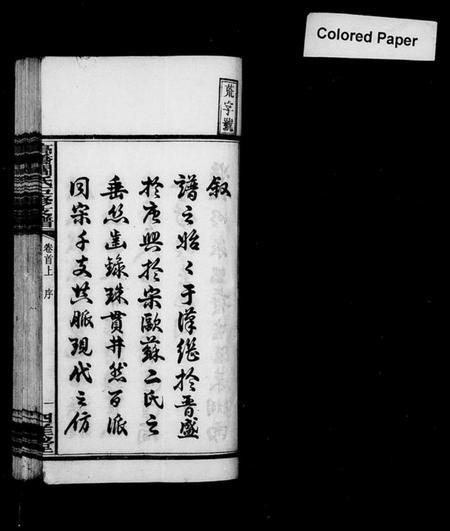 Colored Paper
荒字號
敘
譜之始々于漢繼於晉盛
於唐興於宋歐蘇二氏之
垂絲齒錄珠貫井然百派
同宗千支共脈現代之仿
周氏
支譜
卷首上 序
一